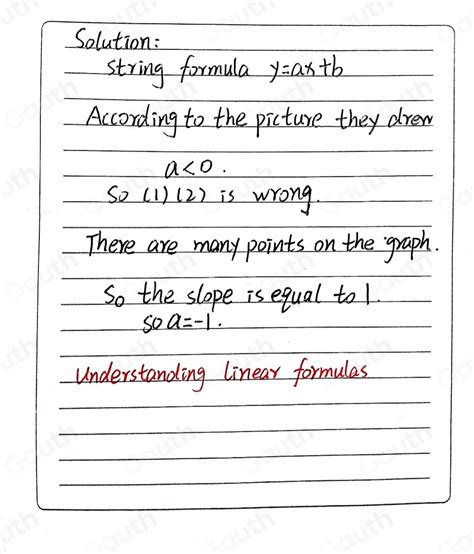 Solution:
string formula y=ax+b
According to the picture they drew
a<0.
So (1) (2) is wrong.
There are many points on the graph.
So the slope is equal to 1.
so a=-1.
Understanding linear formulas